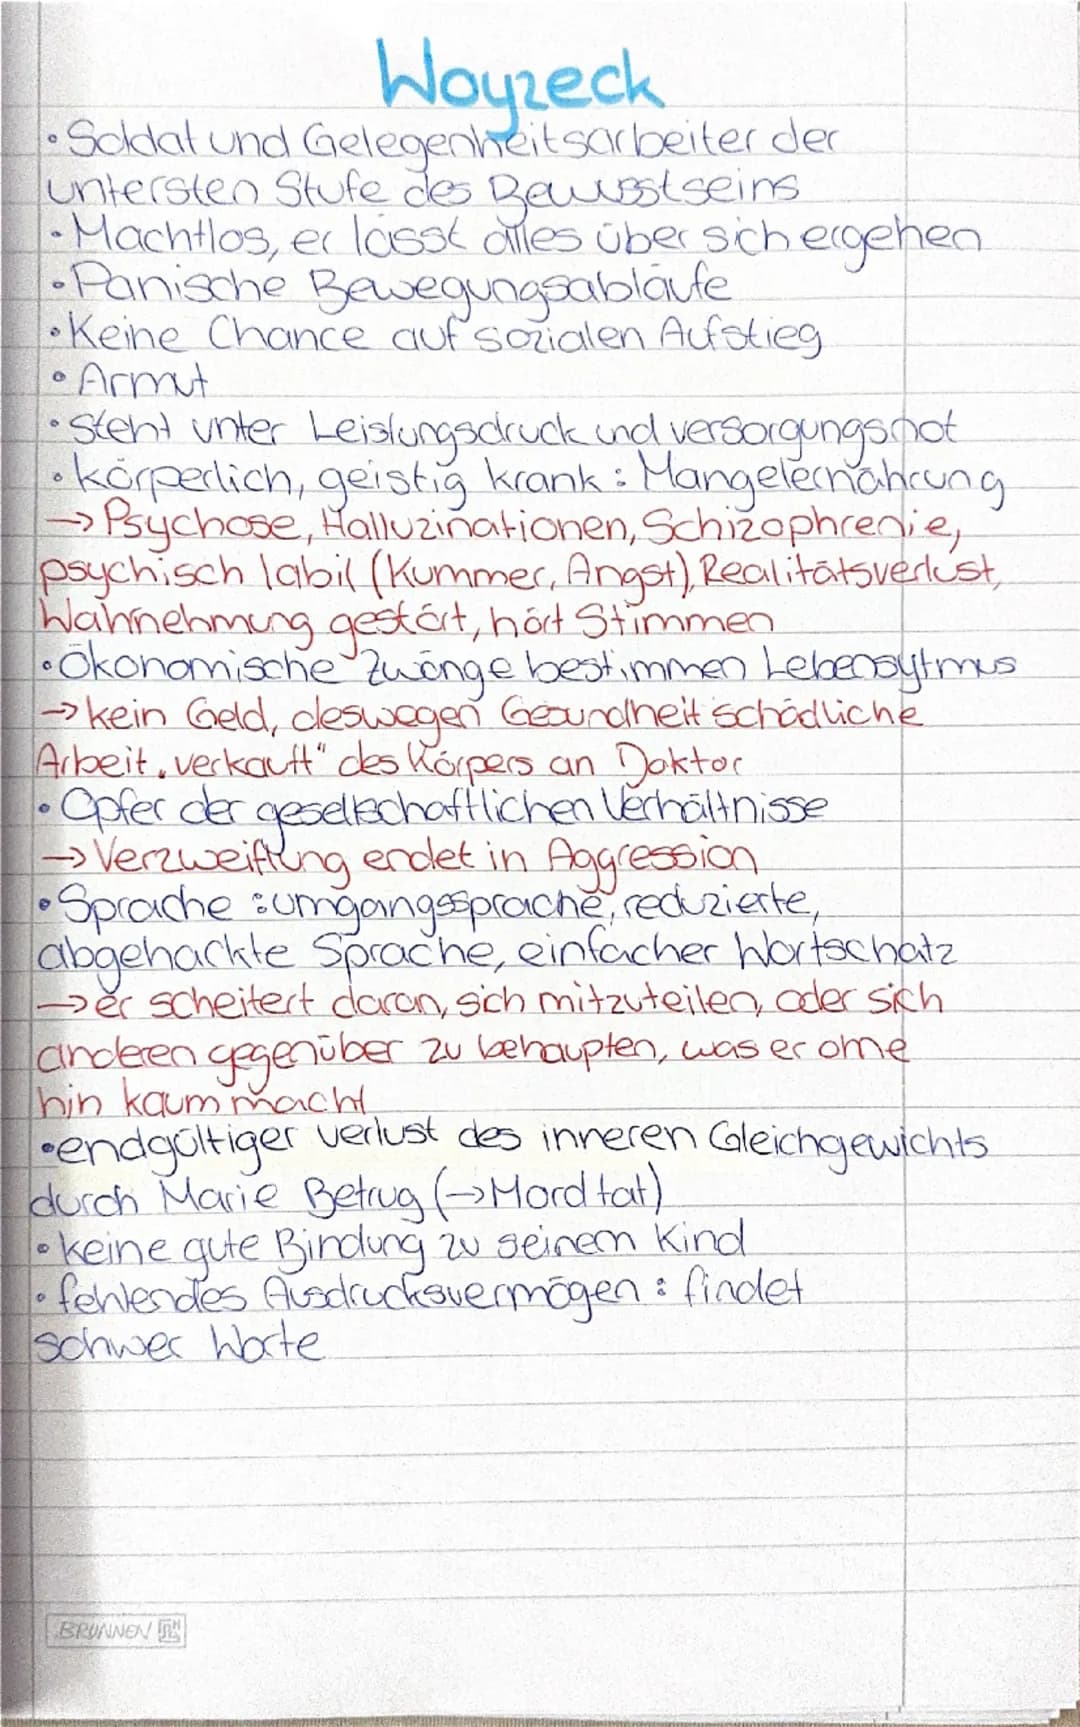 Woyzeck
• Soldat und Gelegenheitsarbeiter der
untersten Stufe des Bewusstseins
• Machtlos, er lässt alles über sich ergehen
• Panische Bewegungsabläufe
• Keine Chance auf sozialen Aufstieg
• Armut
• steht unter Leistungsdruck und versorgungsnot
• körperlich, geistig krank : Mangelernährung
→ Psychose, Halluzinationen, Schizophrenie,
psychisch labil (Kummer, Angst), Realitätsverlust,
Wahrnehmung gestört, hört Stimmen
• Ökonomische Zwänge bestimmen Lebensytmus
→ kein Geld, deswegen Gesundheit schädliche
Arbeit „verkauft" des Körpers an Doktor
• Opfer der gesellschaftlichen Verhältnisse
→ Verzweiflung endet in Aggression
• Sprache : umgangssprache, reduzierte,
abgehackte Sprache, einfacher Wortschatz
→ er scheitert daran, sich mitzuteilen, oder sich
anderen gegenüber zu behaupten, was er ome
hin kaum macht
• endgültiger verlust des inneren Gleichgewichts
durch Marie Betrug (→ Mordtat)
• keine gute Bindung zu seinem Kind
• fehlendes Ausdrucksvermögen : findet
schwer Worte
BRUNNEN